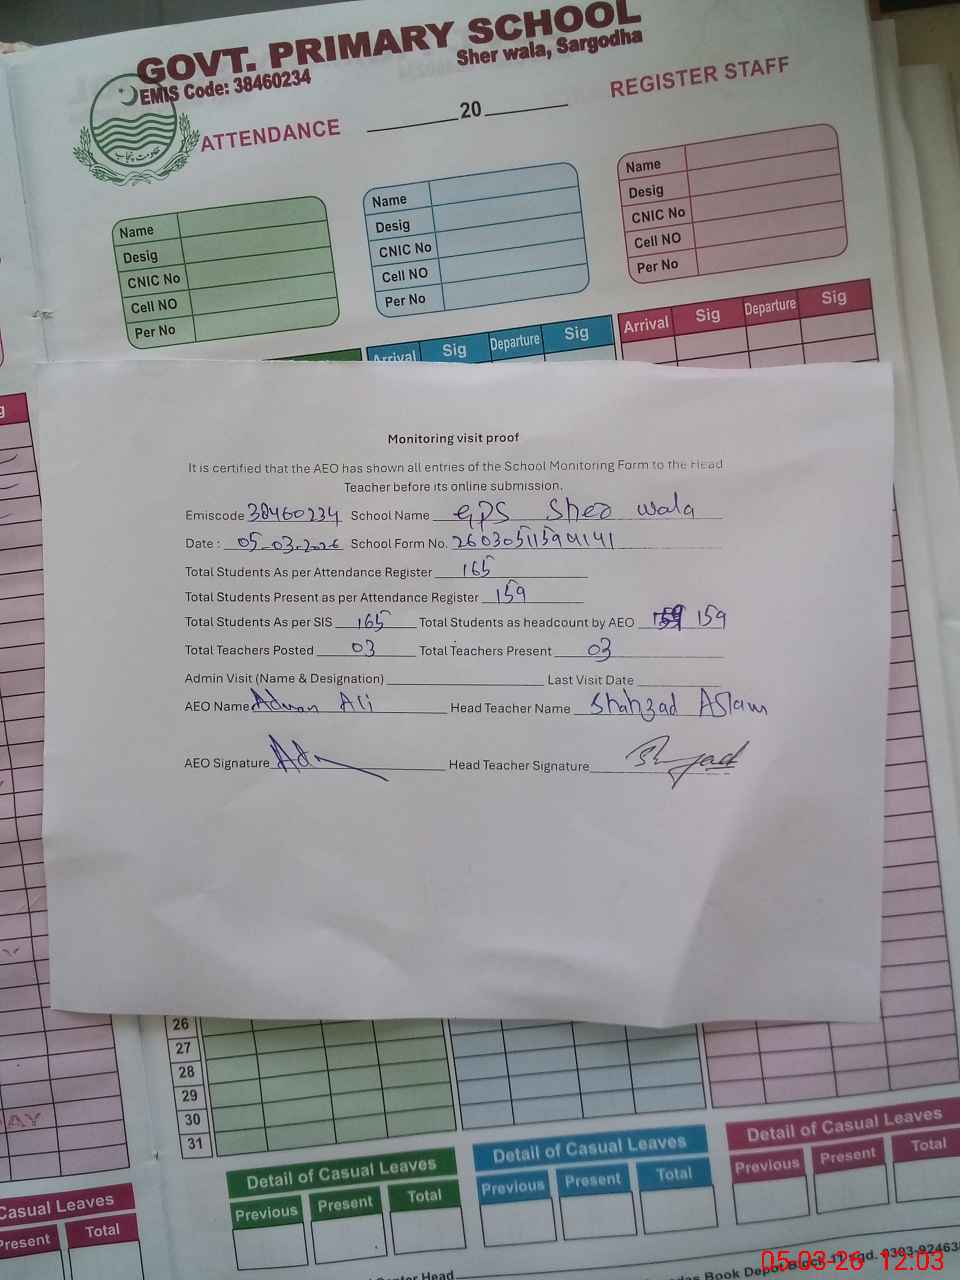 GOVT. PRIMARY SCHOOL
Sher wala, Sargodha
EMIS Code: 38460234
حکومت پنجاب
ATTENDANCE ______20______ REGISTER STAFF
Name Name Name
Desig Desig Desig
CNIC No CNIC No CNIC No
Cell NO Cell NO Cell NO
Per No Per No Per No
Arrival Sig Departure Sig Arrival Sig Departure Sig
Monitoring visit proof
It is certified that the AEO has shown all entries of the School Monitoring Form to the Head
Teacher before its online submission.
Emiscode 38460234 School Name GPS Sher wala
Date : 05-03-2026 School Form No. 26030511590141
Total Students As per Attendance Register 165
Total Students Present as per Attendance Register 159
Total Students As per SIS 165 Total Students as headcount by AEO 159 159
Total Teachers Posted 03 Total Teachers Present 03
Admin Visit (Name & Designation) Last Visit Date
AEO Name Adnan Ali Head Teacher Name Shahzad Aslam
AEO Signature Head Teacher Signature
26
27
28
29
30
31
Detail of Casual Leaves Detail of Casual Leaves Detail of Casual Leaves
Previous Present Total Previous Present Total Previous Present Total
Casual Leaves
Present Total
Head
Book Depot Block
05-03-26 12:03